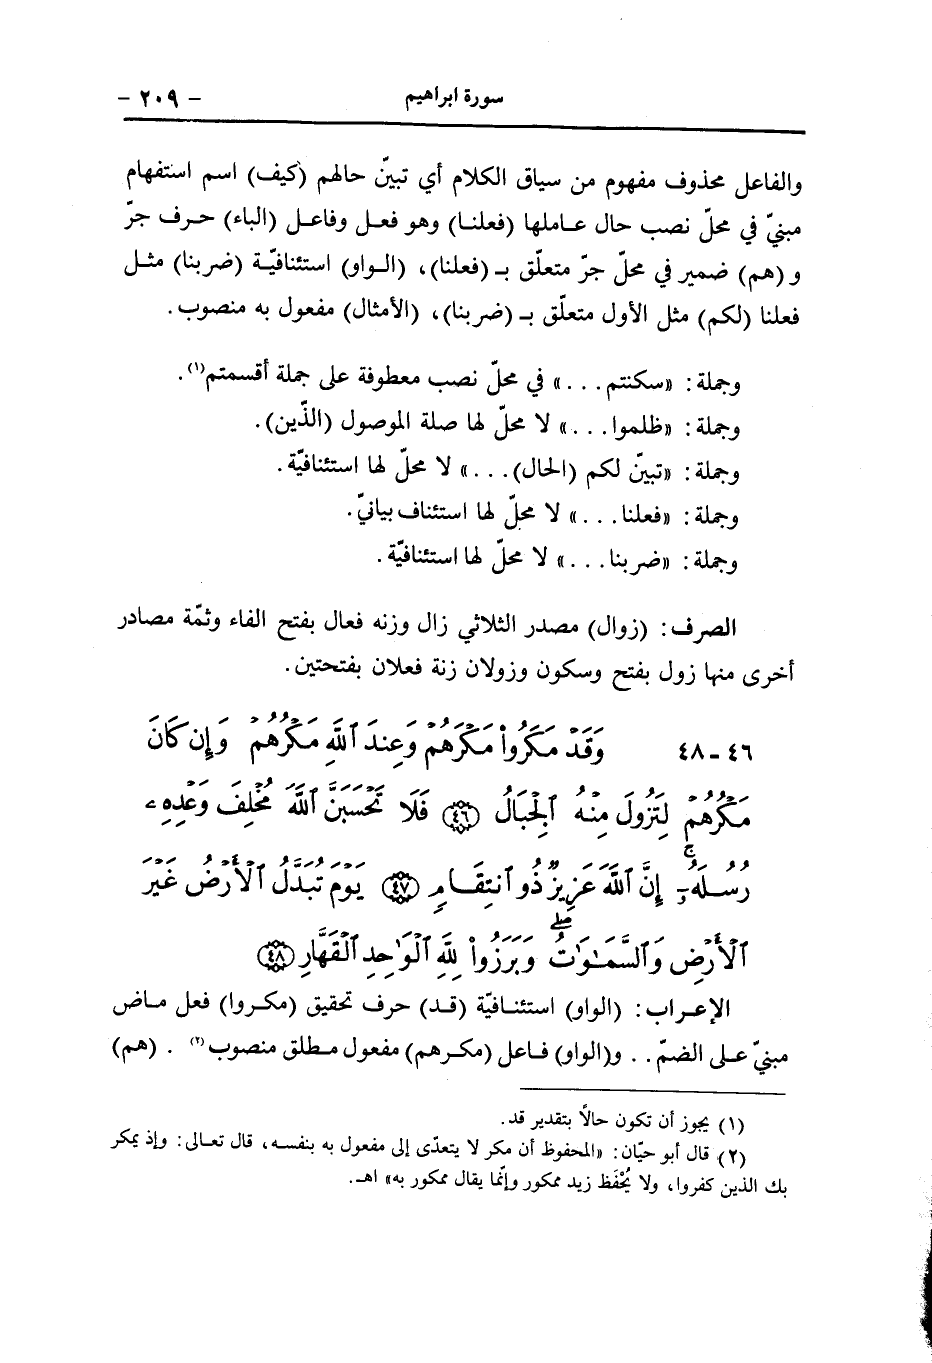 سورة ابراهيم - ٢٠٩ -
والفاعل محذوف مفهوم من سياق الكلام أي تبينّ حالهم (كيف) اسم استفهام
مبنيّ في محلّ نصب حال عاملها (فعلنا) وهو فعل وفاعل (الباء) حرف جرّ
و (هم) ضمير في محلّ جرّ متعلّق بـ (فعلنا)، (الواو) استئنافيّة (ضربنا) مثل
فعلنا (لكم) مثل الأول متعلّق بـ (ضربنا)، (الأمثال) مفعول به منصوب.
وجملة: «سكنتم...» في محلّ نصب معطوفة على جملة أقسمتم(١).
وجملة: «ظلموا...» لا محلّ لها صلة الموصول (الذّين).
وجملة: «تبينّ لكم (الحال)...» لا محلّ لها استئنافيّة.
وجملة: «فعلنا...» لا محلّ لها استئناف بيانيّ.
وجملة: «ضربنا...» لا محلّ لها استئنافيّة.
الصرف: (زوال) مصدر الثلاثي زال وزنه فعال بفتح الفاء وثمّة مصادر
أخرى منها زول بفتح وسكون وزولان زنة فعلان بفتحتين.
٤٦ - ٤٨ وَقَدْ مَكَرُواْ مَكْرَهُمْ وَعِندَ ٱللَّهِ مَكْرُهُمْ وَإِن كَانَ
مَكْرُهُمْ لِتَزُولَ مِنْهُ ٱلْجِبَالُ ﴿٤٦﴾ فَلَا تَحْسَبَنَّ ٱللَّهَ مُخْلِفَ وَعْدِهِۦ
رُسُلَهُۥٓ ۗ إِنَّ ٱللَّهَ عَزِيزٌ ذُو ٱنتِقَامٍ ﴿٤٧﴾ يَوْمَ تُبَدَّلُ ٱلْأَرْضُ غَيْرَ
ٱلْأَرْضِ وَٱلسَّمَٰوَٰتُ ۖ وَبَرَزُواْ لِلَّهِ ٱلْوَٰحِدِ ٱلْقَهَّارِ ﴿٤٨﴾
الإعراب: (الواو) استئنافيّة (قد) حرف تحقيق (مكروا) فعل ماض
مبنيّ على الضمّ.. و(الواو) فاعل (مكرهم) مفعول مطلق منصوب(٢). (هم)
(١) يجوز أن تكون حالًا بتقدير قد.
(٢) قال أبو حيّان: «المحفوظ أن مكر لا يتعدّى إلى مفعول به بنفسه، قال تعالى: وإذ يمكر
بك الذين كفروا، ولا يُحْفَظ زيد ممكور وإنّما يقال ممكور به» اهـ.